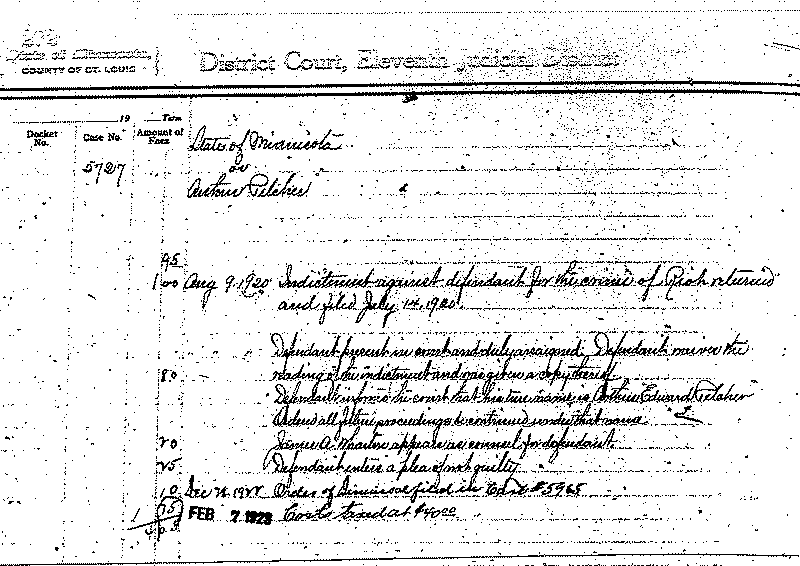 State of Minnesota,
COUNTY OF ST. LOUIS
District Court, Eleventh Judicial District
19 Term
Docket No. Case No. Amount of Fees
State of Minnesota
5727 vs
Arthur Pelcher
95
1 00 Aug 9, 1920 Indictment against defendant for the crime of Riot returned
and filed July 14, 1920.
Defendant present in court and duly arraigned. Defendant waives the
80 reading of the indictment and was given a copy thereof
Defendant informs the court that his true name is Arthur Edward Pelcher
Ordered all future proceedings be continued under that name
20 James A. Wharton appears as counsel for defendant
25 Defendant enters a plea of not guilty
10 Dec 28, 1922 Order of Dismissal filed in Case #5965
1 75 FEB 7 1923 Costs taxed at $4.00